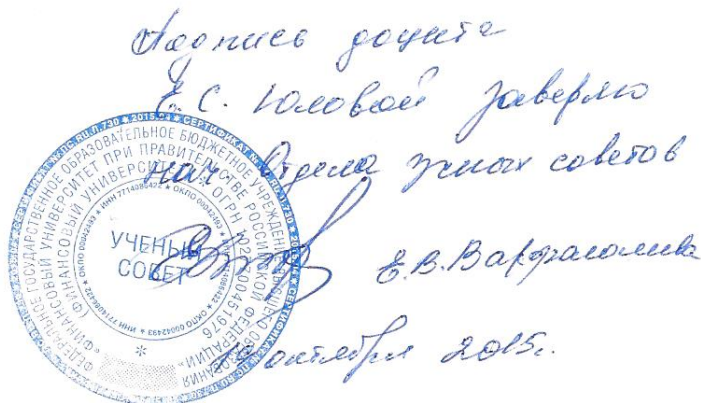 Подпись доцента
Е.С. Юловой заверяю
нач. Отдела ученых советов
Е.В. Варфаломеева
19 октября 2015г.
УЧЕНЫЙ
СОВЕТ
ФЕДЕРАЛЬНОЕ ГОСУДАРСТВЕННОЕ ОБРАЗОВАТЕЛЬНОЕ БЮДЖЕТНОЕ УЧРЕЖДЕНИЕ ВЫСШЕГО ОБРАЗОВАНИЯ
«ФИНАНСОВЫЙ УНИВЕРСИТЕТ ПРИ ПРАВИТЕЛЬСТВЕ РОССИЙСКОЙ ФЕДЕРАЦИИ»
(ФИНАНСОВЫЙ УНИВЕРСИТЕТ) ОГРН
ИНН 7714086422 ★ ОКПО 00042493